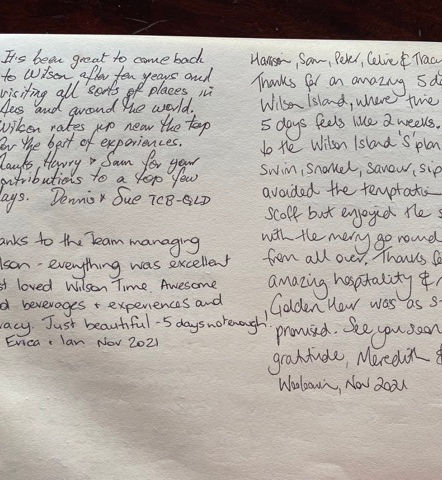 It's been great to come back
to Wilson after ten years and
visiting all sorts of places in
Aus and around the world.
Wilson rates up near the top
for the best of experiences.
Harry & Sam for your
contributions to a top few
days. Dennis & Sue TCB-QLD
anks to the Team managing
lson - everything was excellent
st loved Wilson Time. Awesome
d beverages + experiences and
racy. Just beautiful - 5 days not enough!
Erica + Ian Nov 2021
Harrison, Sam, Peter, Celine & Tracy
Thanks for an amazing 5 da
Wilson Island, where time
5 days feels like 2 weeks.
to the Wilson Island 'S' plan
Swim, snorkel, savour, sip
avoided the temptation
Scoff but enjoyed the s
with the merry go round
from all over. Thanks fo
amazing hospitality &
Golden Hour was as s
promised. See you soon
gratitude, Meredith &
Nov 2021